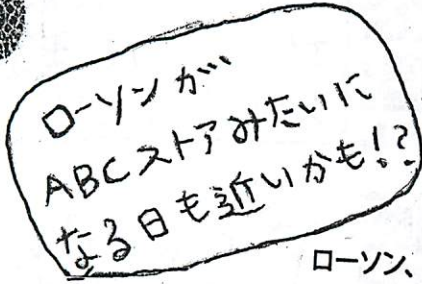 ローソンが
ABCストアみたいに
なる日も近いかも!?
ローソン、